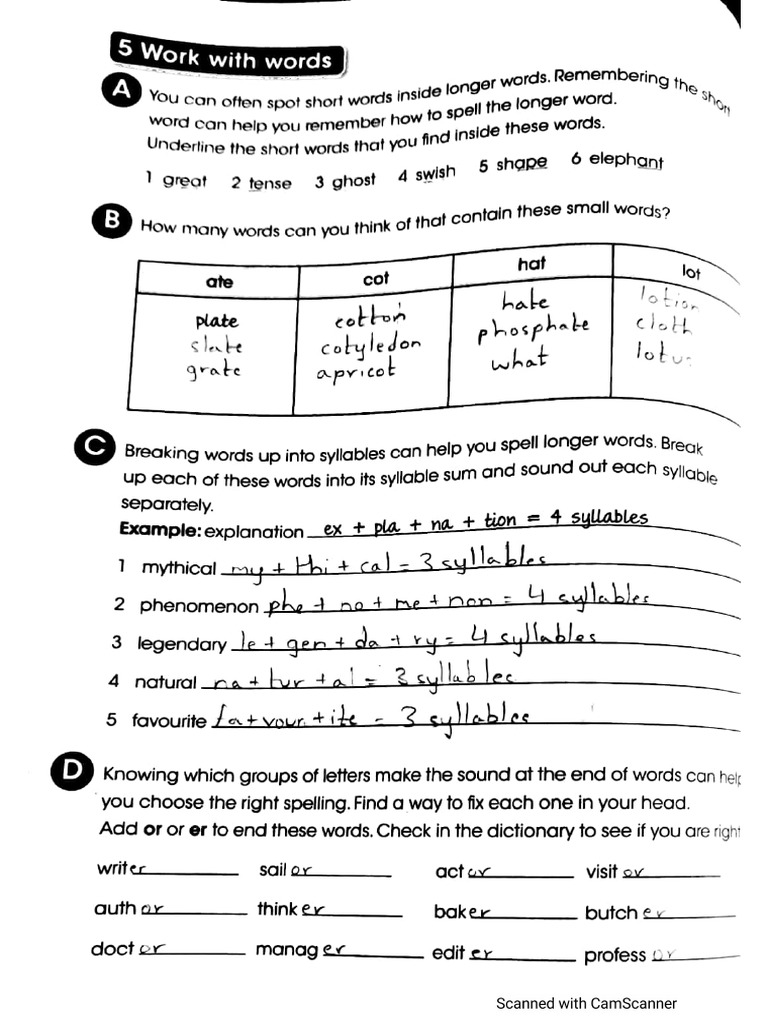 5 Work with words
A You can often spot short words inside longer words. Remembering the short
word can help you remember how to spell the longer word.
Underline the short words that you find inside these words.
1 great 2 tense 3 ghost 4 swish 5 shape 6 elephant
B How many words can you think of that contain these small words?
ate cot hat lot
plate cotton hate lotion
slate cotyledon phosphate cloth
grate apricot what lotus
C Breaking words up into syllables can help you spell longer words. Break
up each of these words into its syllable sum and sound out each syllable
separately.
Example: explanation ex + pla + na + tion = 4 syllables
1 mythical my + thi + cal = 3 syllables
2 phenomenon phe + no + me + non = 4 syllables
3 legendary le + gen + da + ry = 4 syllables
4 natural na + tur + al = 3 syllables
5 favourite fa + vour + ite = 3 syllables
D Knowing which groups of letters make the sound at the end of words can help
you choose the right spelling. Find a way to fix each one in your head.
Add or or er to end these words. Check in the dictionary to see if you are right
writer sailor actor visitor
author thinker baker butcher
doctor manager editer professor
Scanned with CamScanner